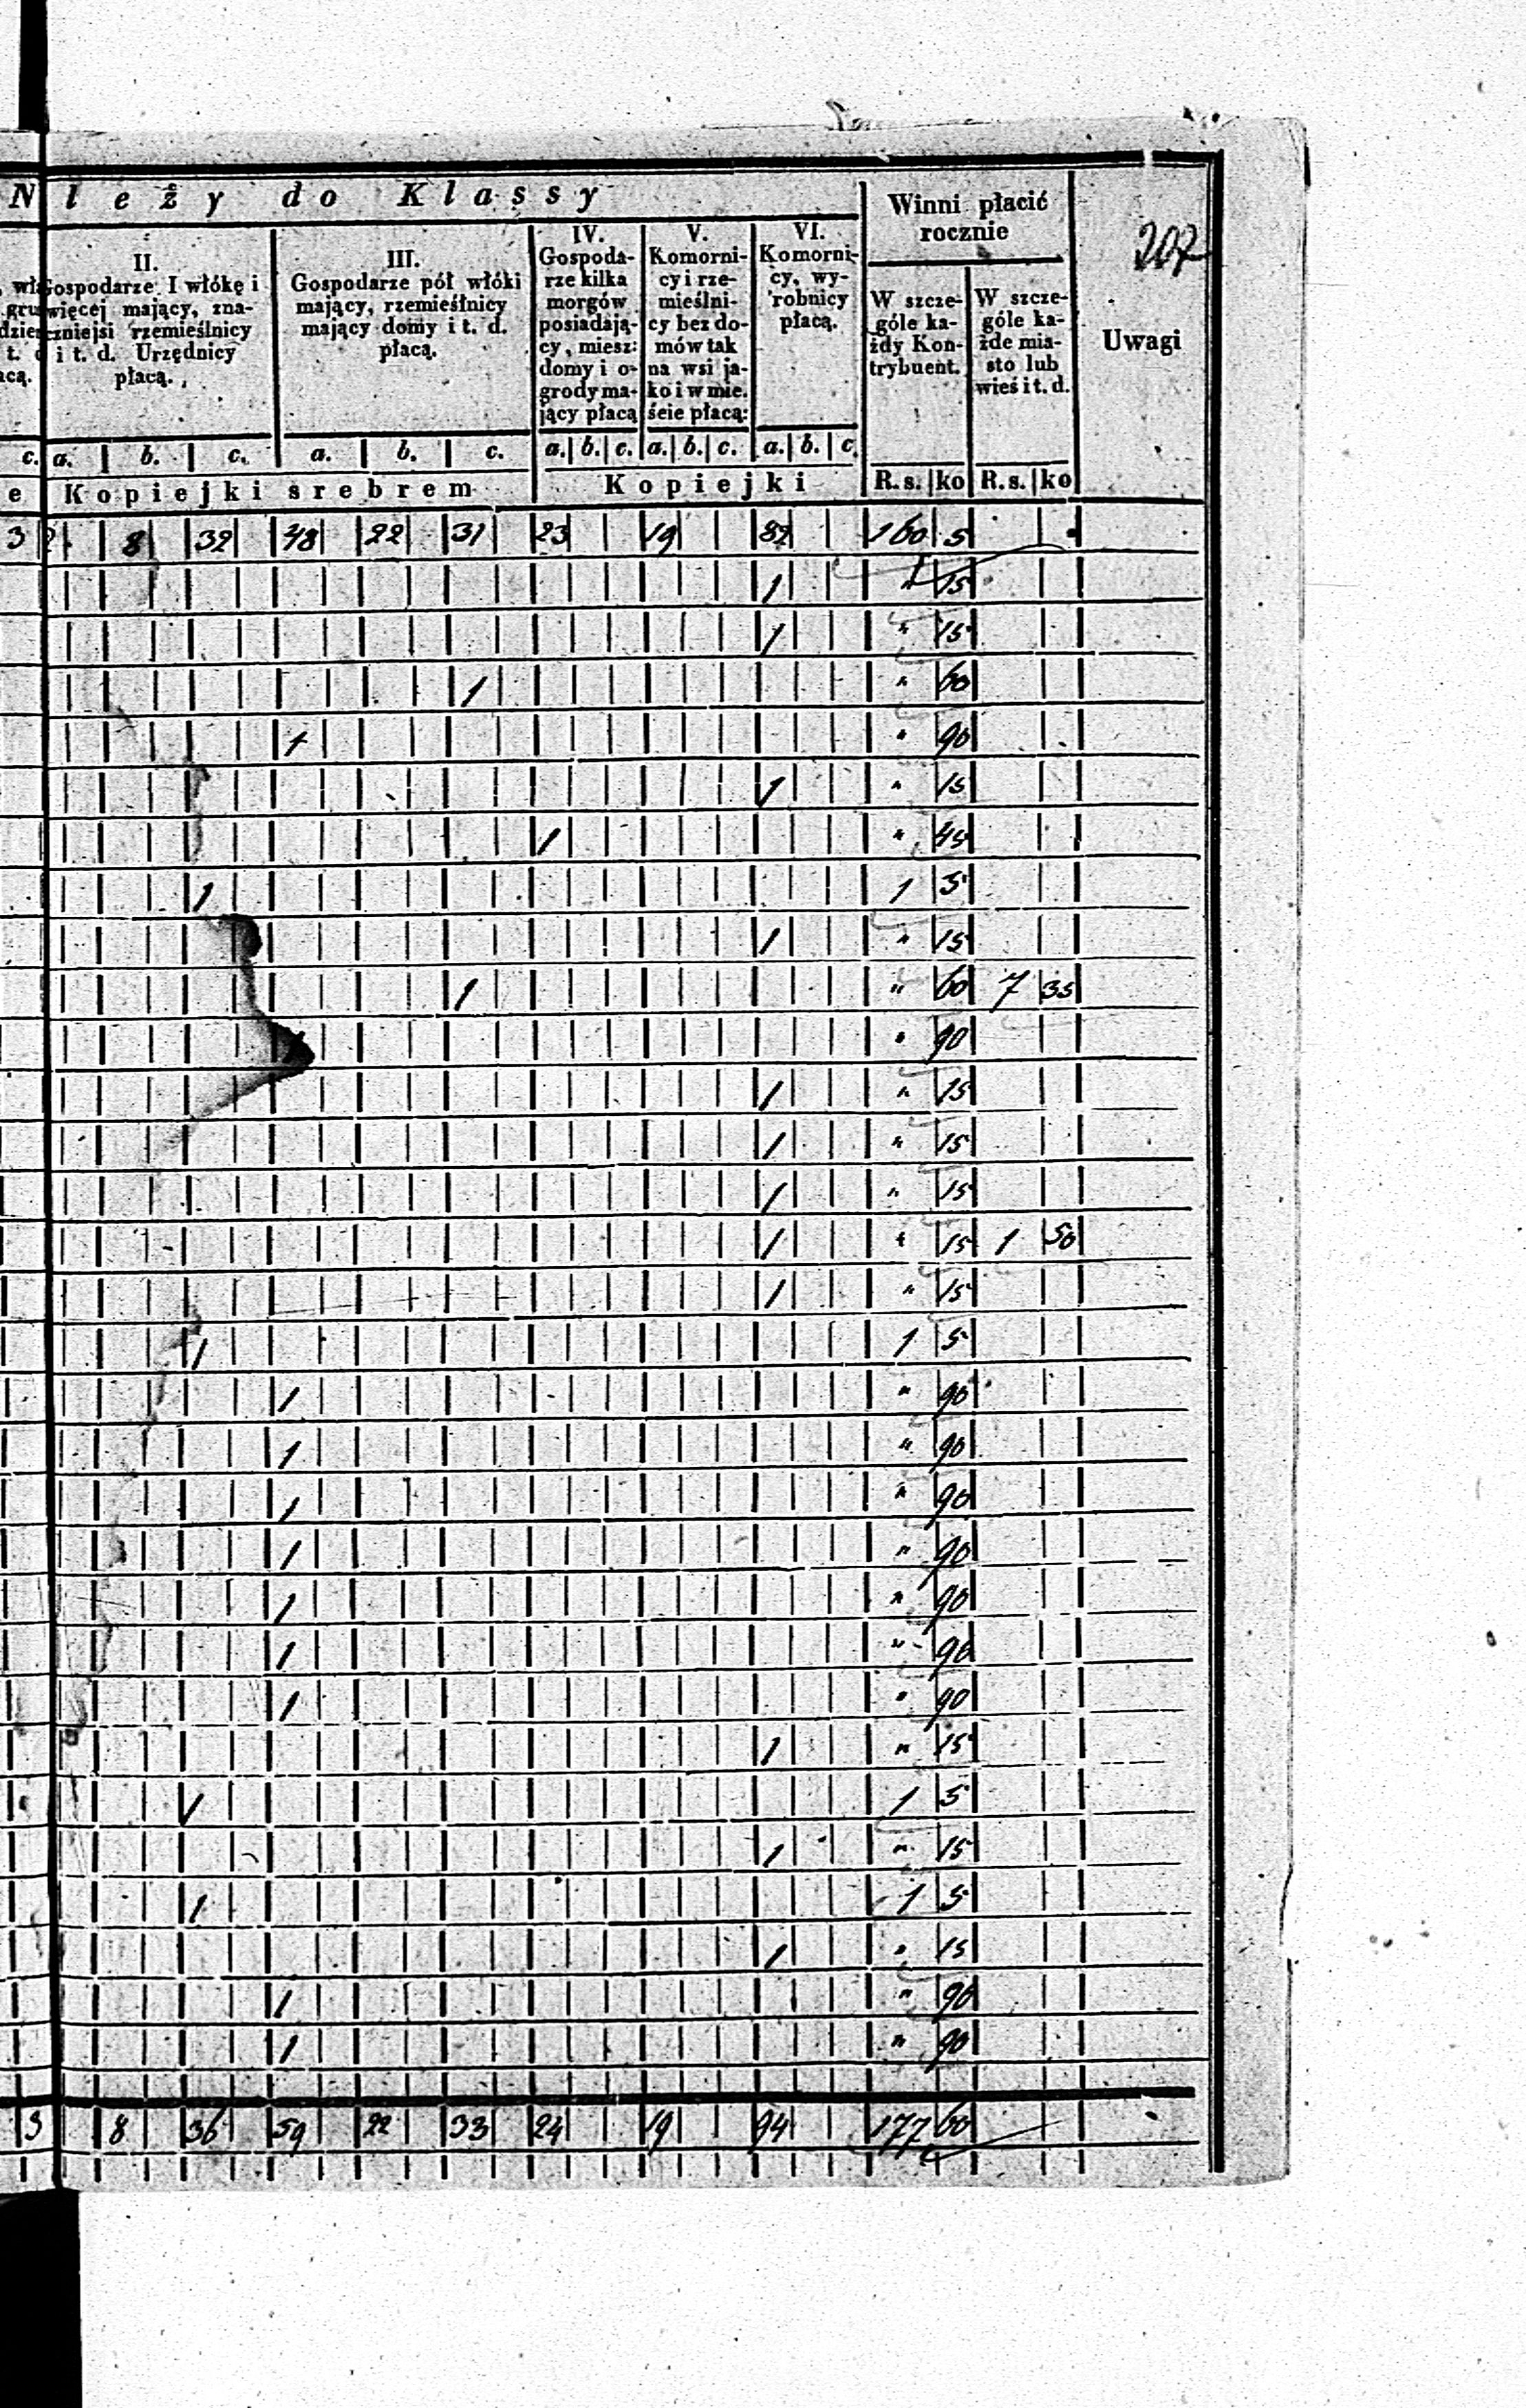 N leży do Klassy
Winni płacić
rocznie
207
Uwagi
II.
Gospodarze I włókę i
więcej mający, zna-
czniejsi rzemieślnicy
i t. d. Urzędnicy
płacą.
III.
Gospodarze pół włóki
mający, rzemieślnicy
mający domy i t. d.
płacą.
IV.
Gospoda-
rze kilka
morgów
posiadają-
cy, miesz:
domy i o-
grody ma-
jący płacą
V.
Komorni-
cy i rze-
mieślni-
cy bez do-
mów tak
na wsi ja-
ko i w mie.
ście płacą:
VI.
Komorni-
cy, wy-
robnicy
płacą.
W szcze-
góle ka-
żdy Kon-
trybuent.
W szcze-
góle ka-
żde mia-
sto lub
wieś i t. d.
c. a. b. c. a. b. c. a. b. c. a. b. c. a. b. c.
e Kopiejki srebrem Kopiejki R. s. ko R. s. ko
3 8 32 48 22 31 23 19 82 160 5
1 " 15
1 " 15
1 " 60
1 " 90
1 " 15
1 " 45
1 1 5
1 " 15
1 " 60 7 35
" 90
1 " 15
1 " 15
1 " 15
1 " 15 1 50
1 " 15
1 1 5
1 " 90
1 " 90
1 " 90
1 " 90
1 " 90
1 " 90
1 " 90
1 " 15
1 1 5
1 " 15
1 1 5
1 " 15
1 " 90
1 " 90
3 8 36 59 22 33 24 19 94 177 60